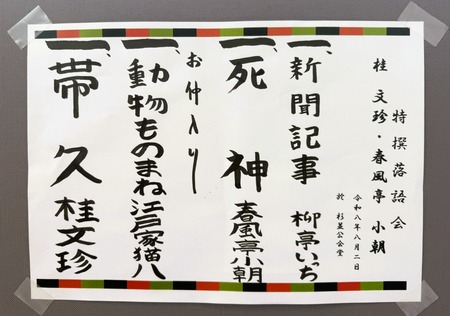 特撰落語会
桂 文珍・春風亭 小朝
令和八年八月二日
於 杉並公会堂
一、新聞記事 柳亭いっち
一、死神 春風亭小朝
お仲入り
一、動物ものまね 江戸家猫八
一、帯久 桂文珍